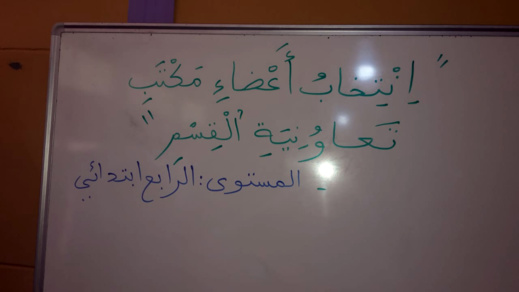 "إِنْتِخَابُ أَعْضَاءِ مَكْتَبِ
تَعَاوُنِيَةِ الْقِسْمِ"
- المستوى: الرابع ابتدائي